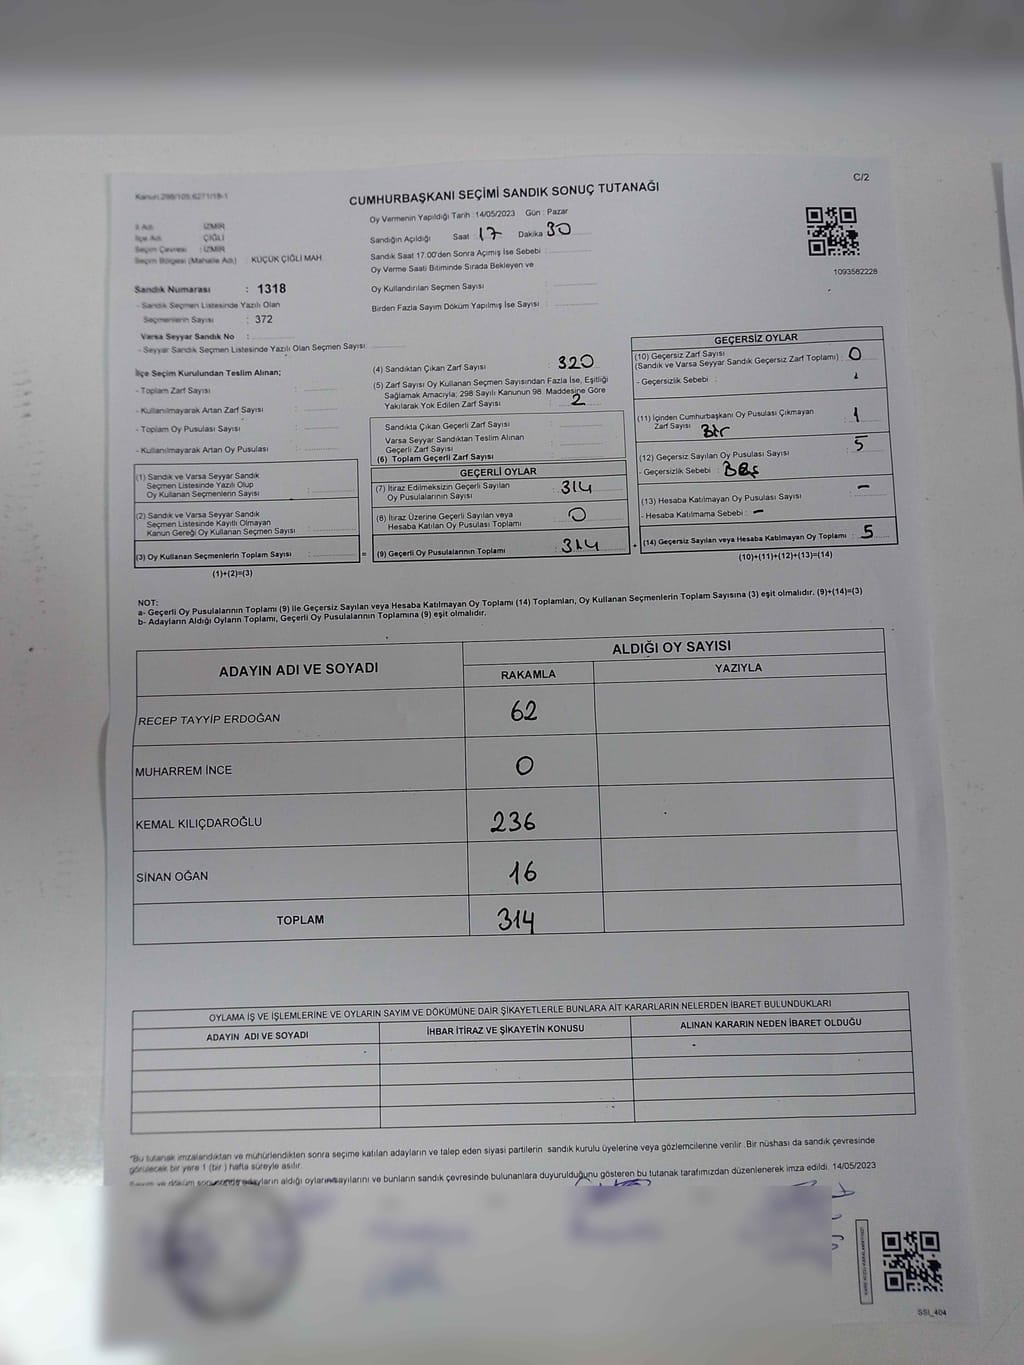 C/2
Kanun:298/105,6271/18-1
CUMHURBAŞKANI SEÇİMİ SANDIK SONUÇ TUTANAĞI
Oy Vermenin Yapıldığı Tarih : 14/05/2023 Gün : Pazar
İl Adı : İZMİR
İlçe Adı : ÇİĞLİ
Seçim Çevresi : İZMİR
Seçim Bölgesi (Mahalle Adı) : KÜÇÜK ÇİĞLİ MAH
Sandığın Açıldığı Saat 17 Dakika 30
Sandık Saat 17.00'den Sonra Açımış İse Sebebi :
Oy Verme Saati Bitiminde Sırada Bekleyen ve
Oy Kullandırılan Seçmen Sayısı :
Birden Fazla Sayım Döküm Yapılmış İse Sayısı :
1093582228
Sandık Numarası : 1318
- Sandık Seçmen Listesinde Yazılı Olan
Seçmenlerin Sayısı : 372
Varsa Seyyar Sandık No :
- Seyyar Sandık Seçmen Listesinde Yazılı Olan Seçmen Sayısı:
İlçe Seçim Kurulundan Teslim Alınan;
- Toplam Zarf Sayısı :
- Kullanılmayarak Artan Zarf Sayısı :
- Toplam Oy Pusulası Sayısı :
- Kullanılmayarak Artan Oy Pusulası :
(1) Sandık ve Varsa Seyyar Sandık
Seçmen Listesinde Yazılı Olup
Oy Kullanan Seçmenlerin Sayısı :
(2) Sandık ve Varsa Seyyar Sandık
Seçmen Listesinde Kayıtlı Olmayan
Kanun Gereği Oy Kullanan Seçmen Sayısı :
(3) Oy Kullanan Seçmenlerin Toplam Sayısı : =
(1)+(2)=(3)
(4) Sandıktan Çıkan Zarf Sayısı : 320
(5) Zarf Sayısı Oy Kullanan Seçmen Sayısından Fazla İse, Eşitliği
Sağlamak Amacıyla; 298 Sayılı Kanunun 98. Maddesine Göre
Yakılarak Yok Edilen Zarf Sayısı : 2
Sandıkta Çıkan Geçerli Zarf Sayısı :
Varsa Seyyar Sandıktan Teslim Alınan
Geçerli Zarf Sayısı :
(6) Toplam Geçerli Zarf Sayısı :
GEÇERLİ OYLAR
(7) İtiraz Edilmeksizin Geçerli Sayılan
Oy Pusulalarının Sayısı : 314
(8) İtiraz Üzerine Geçerli Sayılan veya
Hesaba Katılan Oy Pusulası Toplamı : 0
(9) Geçerli Oy Pusulalarının Toplamı : 314 +
GEÇERSİZ OYLAR
(10) Geçersiz Zarf Sayısı
(Sandık ve Varsa Seyyar Sandık Geçersiz Zarf Toplamı) : 0
- Geçersizlik Sebebi :
(11) İçinden Cumhurbaşkanı Oy Pusulası Çıkmayan
Zarf Sayısı Bir : 1
(12) Geçersiz Sayılan Oy Pusulası Sayısı : 5
- Geçersizlik Sebebi : Beş
(13) Hesaba Katılmayan Oy Pusulası Sayısı : -
- Hesaba Katılmama Sebebi : -
(14) Geçersiz Sayılan veya Hesaba Katılmayan Oy Toplamı : 5
(10)+(11)+(12)+(13)=(14)
NOT:
a- Geçerli Oy Pusulalarının Toplamı (9) ile Geçersiz Sayılan veya Hesaba Katılmayan Oy Toplamı (14) Toplamları, Oy Kullanan Seçmenlerin Toplam Sayısına (3) eşit olmalıdır. (9)+(14)=(3)
b- Adayların Aldığı Oyların Toplamı, Geçerli Oy Pusulalarının Toplamına (9) eşit olmalıdır.
ADAYIN ADI VE SOYADI
ALDIĞI OY SAYISI
RAKAMLA YAZIYLA
RECEP TAYYİP ERDOĞAN 62
MUHARREM İNCE 0
KEMAL KILIÇDAROĞLU 236
SİNAN OĞAN 16
TOPLAM 314
OYLAMA İŞ VE İŞLEMLERİNE VE OYLARIN SAYIM VE DÖKÜMÜNE DAİR ŞİKAYETLERLE BUNLARA AİT KARARLARIN NELERDEN İBARET BULUNDUKLARI
ADAYIN ADI VE SOYADI İHBAR İTİRAZ VE ŞİKAYETİN KONUSU ALINAN KARARIN NEDEN İBARET OLDUĞU
"Bu tutanak imzalandıktan ve mühürlendikten sonra seçime katılan adayların ve talep eden siyasi partilerin sandık kurulu üyelerine veya gözlemcilerine verilir. Bir nüshası da sandık çevresinde
görülecek bir yere 1 (bir) hafta süreyle asılır.
Sayım ve döküm adayların aldığı oyların sayılarını ve bunların sandık çevresinde bulunanlara duyurulduğunu gösteren bu tutanak tarafımızdan düzenlenerek imza edildi. 14/05/2023
SSI_404